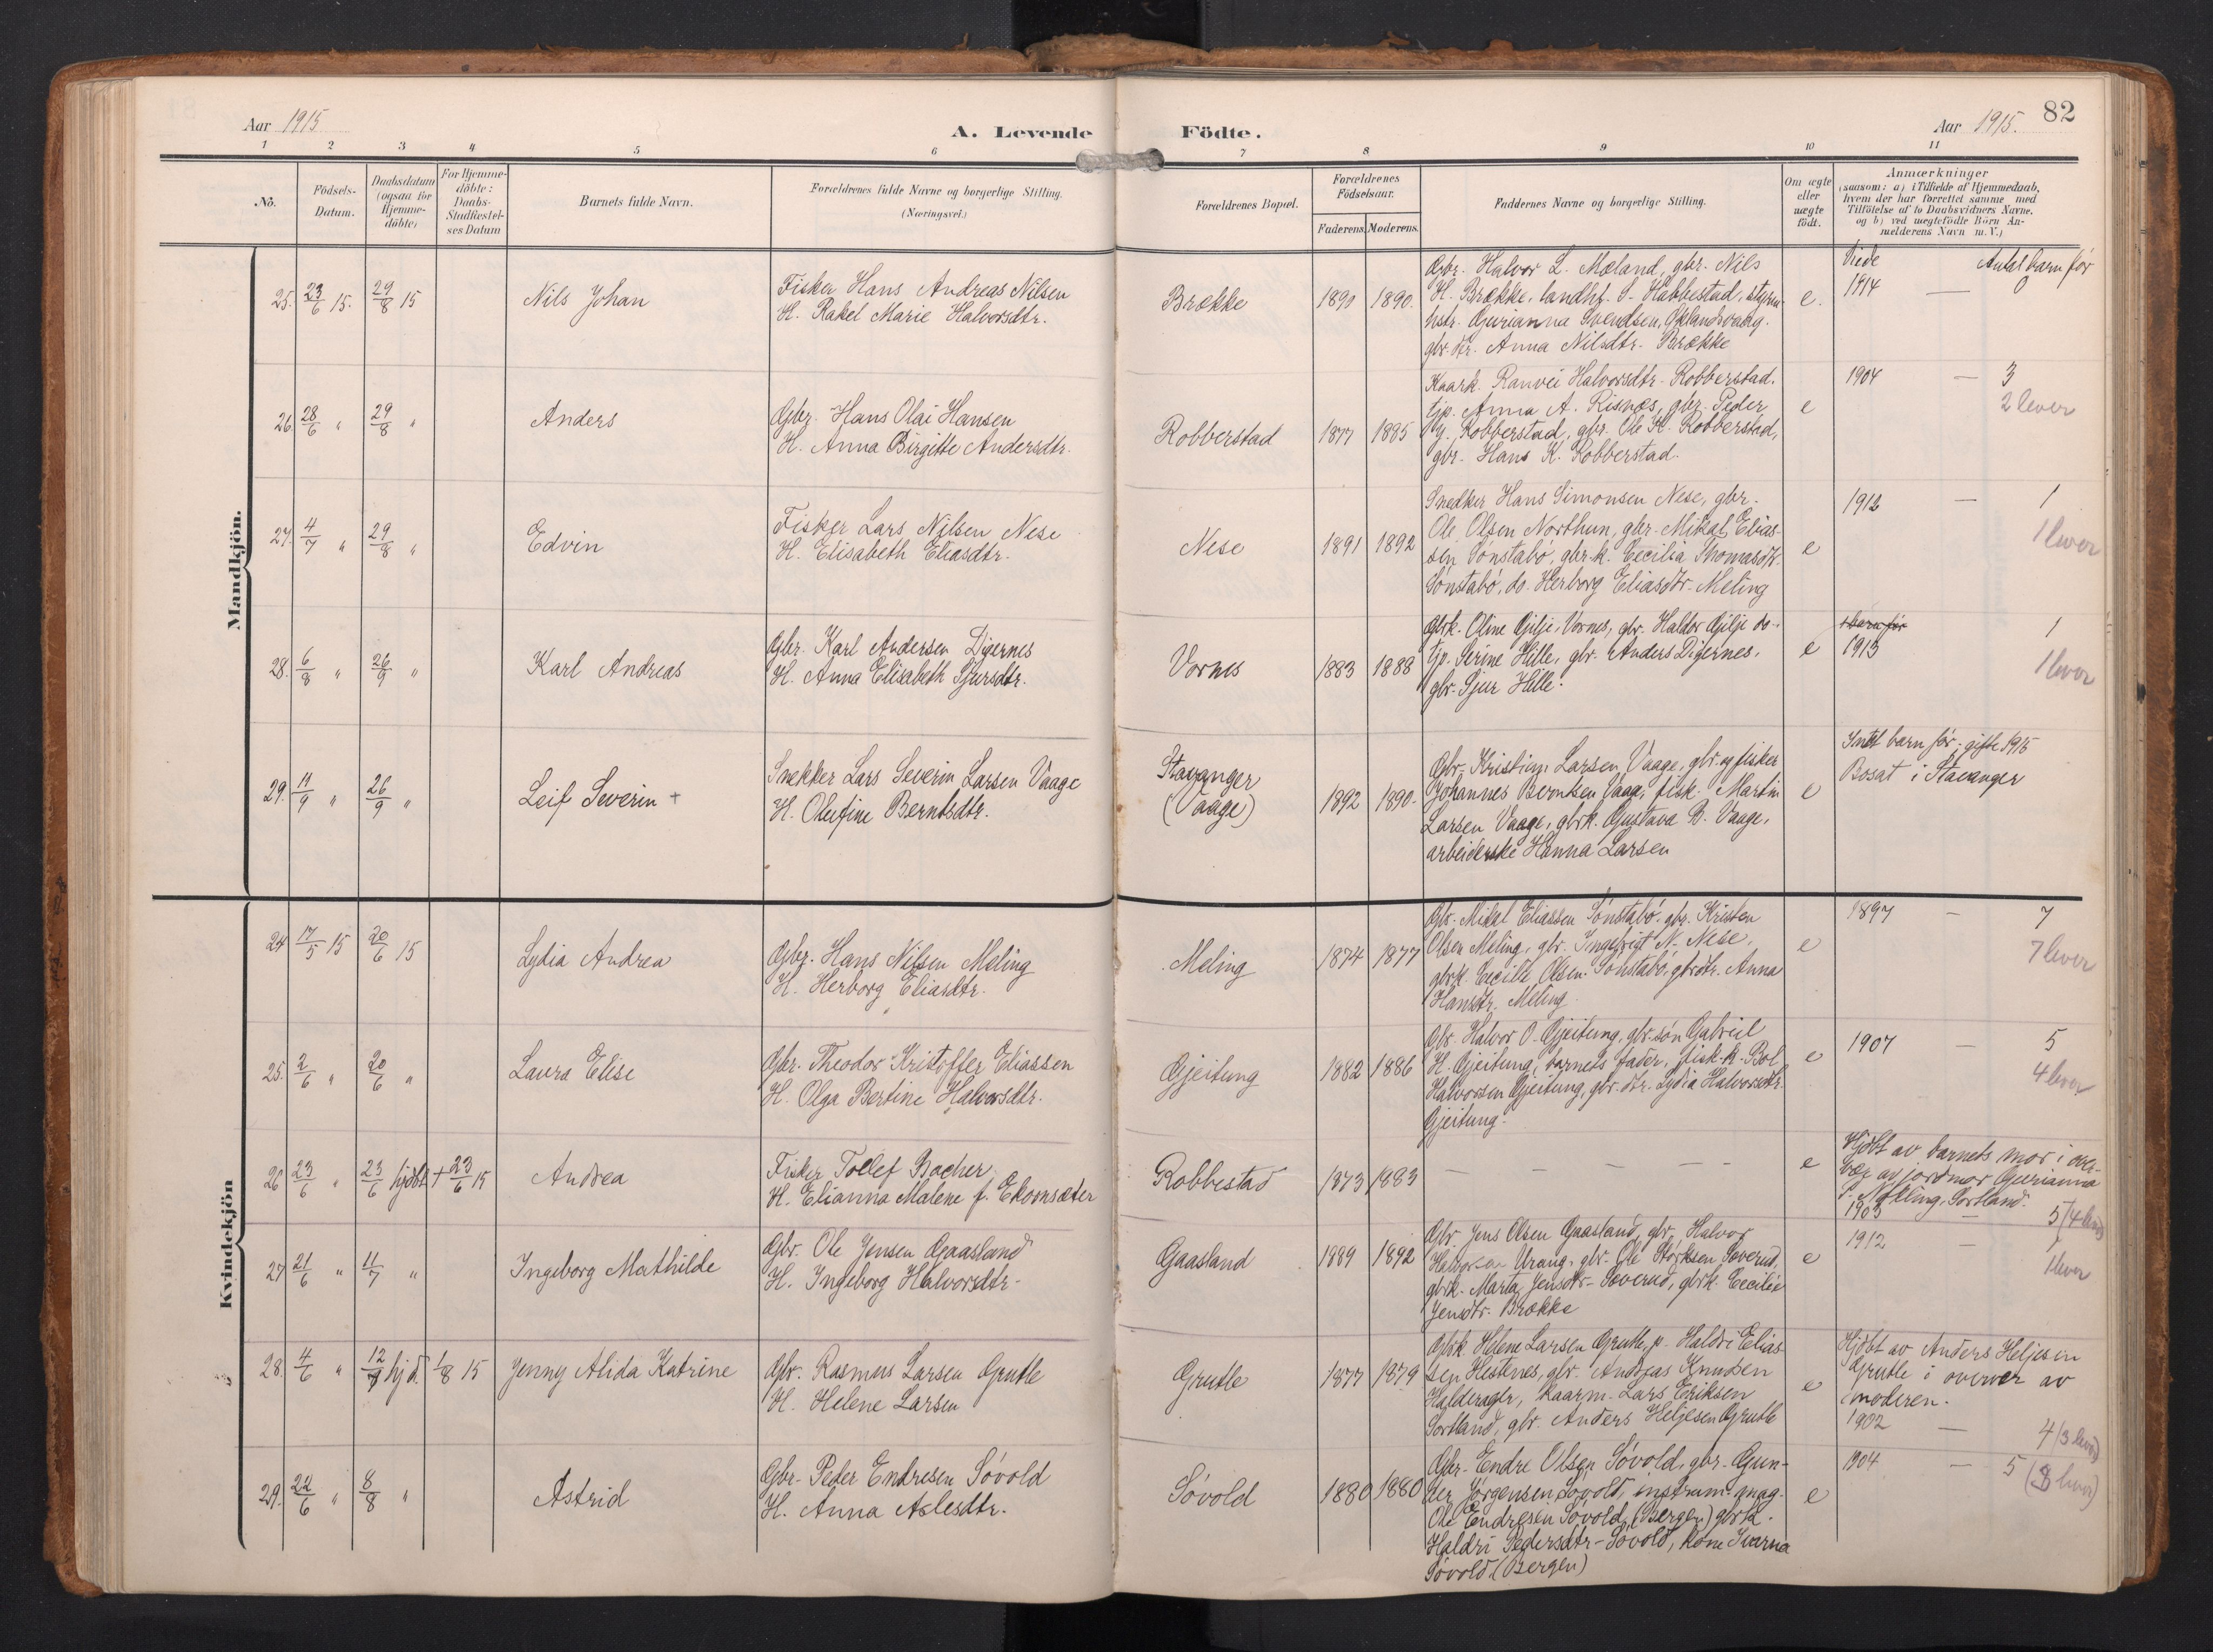 Aar 1915
A. Levende Födte.
Aar 1915.
82
1 2 3 4 5 6 7 8 9 10 11
No.
Födsels-
Datum.
Daabsdatum
(ogsaa for
Hjemme-
döbte)
For Hjemme-
döbte:
Daabs-
Stadfæstel-
ses Datum
Barnets fulde Navn.
Forældrenes fulde Navne og borgerlige Stilling.
(Næringsvei.)
Forældrenes Bopæl.
Forældrenes
Födselsaar.
Faderens. Moderens.
Faddernes Navne og borgerlige Stilling.
Om ægte
eller
uægte
födt.
Anmærkninger
(saasom: a) i Tilfælde af Hjemmedaab,
hvem der har forrettet samme med
Tilföielse af to Daabsvidners Navne,
og b) ved uægtefödte Börn An-
melderens Navn m. V.)
Mandkjön.
25. 23/6 15. 29/8 15
Nils Johan
Fisker Hans Andreas Nilsen
H. Rakel Marie Halvorsdtr.
Brække
1891 1890.
Gbr. Halvor L. Mæland, gbr. Nils
H. Brække, landhf. S. Habbestad, styrm.
hstr. Gurianna Svendsen, Oklandsvaag.
gbr. dtr. Anna Nilsdtr. Brække
e.
Viede Antal barn før
1914 —
26. 28/6 " 29/8 "
Anders
Gbr. Hans Olai Hansen
H. Anna Birgitte Andersdtr.
Robberstad
1877 1885
Kaark. Ranvei Halvorsdtr. Robberstad.
tjp. Anna A. Risnæs, gbr. Peder
G. Robberstad, gbr. Ole H. Robberstad,
gbr. Hans K. Robberstad.
e
1904 — 3
2 lever
27. 4/7 " 29/8 "
Edvin
Fisker Lars Nilsen Nese
H. Elisabeth Eliasdtr.
Nese
1891 1892
Snedker Hans Simonsen Nese, gbr.
Ole Olsen Northun, gbr. Mikal Elias-
sen Sønstabø, gbr.k. Cecilia Thomasdtr.
Sønstabø, do. Herborg Eliasdtr. Meling
e
1912 — 1
1 lever
28. 6/8 " 26/9 "
Karl Andreas
Gbr. Karl Andersen Digernes
H. Anna Elisabeth Sjursdtr.
Vornes
1883 1888
Gbrk. Oline Gilje, Vornes, gbr. Haldor Gilje do.
tjp. Serine Hille, gbr. Anders Digernes,
gbr. Sjur Hille.
e
1 barn før
1913 1
1 lever
29. 11/9 " 26/9 "
Leif Severin +
Snekker Lars Severin Larsen Vaage
H. Olufine Berntsdtr.
Stavanger
(Vaage)
1892 1890.
Gbr. Kristian Larsen Vaage, gbr. og fisker
Johannes Berntsen Vaage, fisk. Martin
Larsen Vaage, gbrk. Gustava B. Vaage,
arbeiderske Hanna Larsen
e
Intet barn før; gifte 1915
Bosat i Stavanger
Kvindekjön
24 17/5 15 20/6 15
Lydia Andrea
Gbr. Hans Nilsen Meling
H. Herborg Eliasdtr.
Meling
1874 1877
Gbr. Mikal Eliassen Sønstabø, gbr. Kristen
Olsen Meling, gbr. Ingebrigt N. Nese,
gbrk. Cecilie Olsen Sønstabø, gbrdtr. Anna
Hansdtr. Meling
e
1897 — 7
7 lever
25. 2/6 " 20/6 "
Laura Elise
Gbr. Theodor Kristoffer Eliassen
H. Olga Bertine Halvorsdtr.
Gjeitung
1882 1886
Gbr. Halvor O. Gjeitung, gbr.søn Gabriel
H. Gjeitung, barnets fader, fisk.k. Bol
Halvorsen Gjeitung, gbr. dtr. Lydia Halvorsdtr.
Gjeitung.
e
1907 — 5
4 lever
26 23/6 " 23/6 hjdbt + 23/6 15
Andrea
Fisker Tollef Bocher
H. Elianna Malene f. Ekornsæter
Robbestad
1873 1883
— — — — —
e
Hjdbt av barnets mor i over-
vær av jordmor Gurianna
S. Nøkling, Sortland.
1903 — 5 (4 lever)
27 21/6 " 11/7 "
Ingeborg Mathilde
Gbr. Ole Jensen Gaasland
H. Ingeborg Halvorsdtr.
Gaasland
1889 1892
Gbr. Jens Olsen Gaasland, gbr. Halvor
Halvorsen Urang, gbr. Ole Størksen Soverud,
gbrk. Marta Jensdtr. Soverud, gbrk. Cecilie
Jensdtr. Brække
e
1912 — 1
1 lever
28. 4/6 " 12/7 hjd. 1/8 15
Jenny Alida Katrine
Gbr. Rasmus Larsen Grutle
H. Helene Larsen
Grutle
1877 1879
Gbrk. Helene Larsen Grutle, p. Haldri Elias-
sen Hestnes, gbr. Andreas Knudsen
Halderager, kaarm. Lars Eriksen
Sortland, gbr. Anders Heljesen Grutle
e
Hjdbt av Anders Heljesen
Grutle i overvær av
moderen.
1902 — 4 (3 lever)
29. 22/6 " 8/8 "
Astrid
Gbr. Peder Endresen Søvold
H. Anna Aslesdtr.
Søvold
1880 1880
Gbr. Endre Olsen Søvold, gbr. Gun-
der Jørgensen Søvold, instrum. mag.
Ole Endresen Søvold (Bergen) gbrk.
Haldri Pedersdtr. Søvold, kone Ivarna
Søvold (Bergen)
e
1904 — 5 (3 lever)